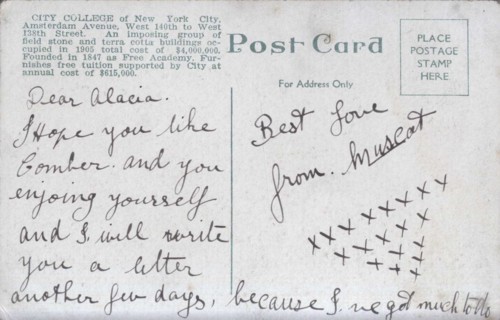 CITY COLLEGE of New York City.
Amsterdam Avenue, West 140th to West
138th Street. An imposing group of
field stone and terra cotta buildings oc-
cupied in 1905 total cost of $4,000,000.
Founded in 1847 as Free Academy. Fur-
nishes free tuition supported by City at
annual cost of $615,000.
Post Card
PLACE
POSTAGE
STAMP
HERE
For Address Only
Dear Alacia.
I Hope you like
Comber. and you
enjoing yourself
and I will write
you a letter
another few days, because I've got much to do
Best love
from. Muscat
x x x x x x x x
x x x x x
x x x x
x x x